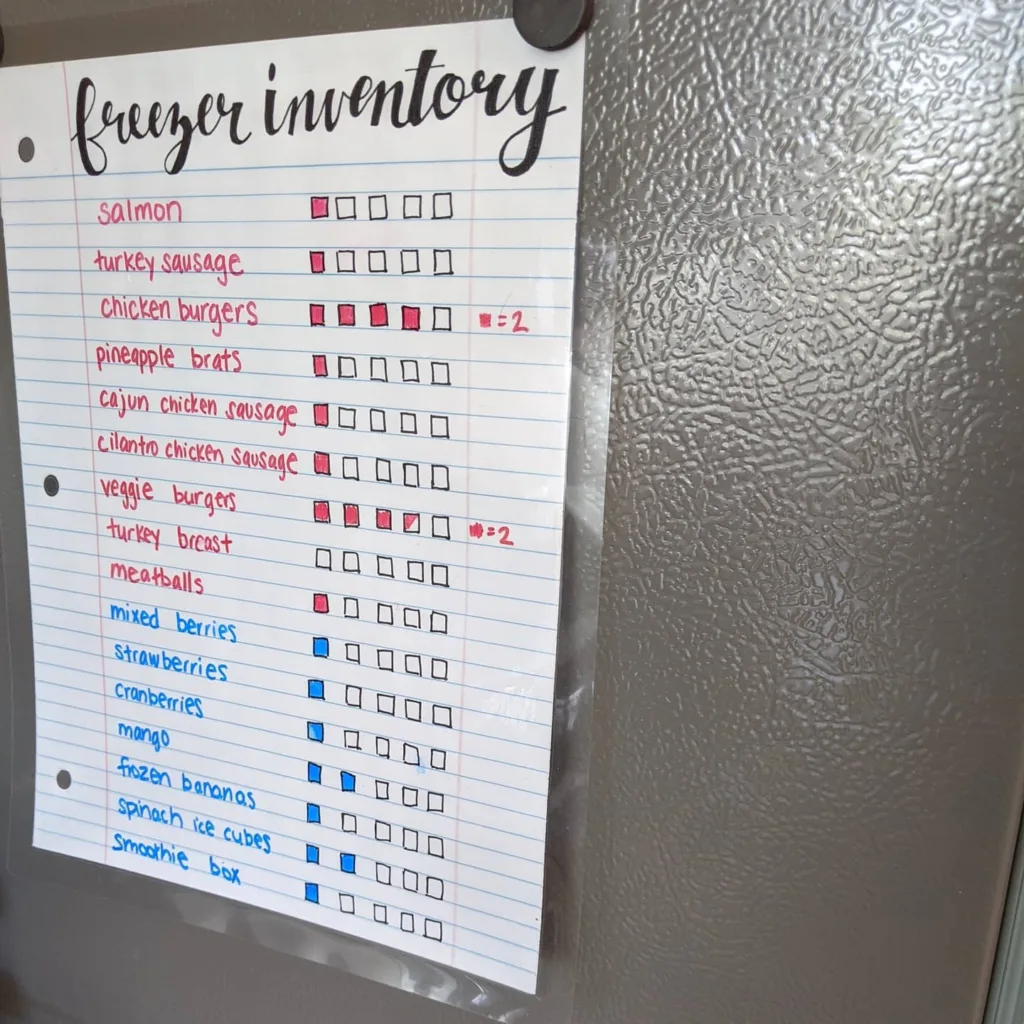 freezer inventory
salmon
turkey sausage
chicken burgers =2
pineapple brats
cajun chicken sausage
cilantro chicken sausage
veggie burgers =2
turkey breast
meatballs
mixed berries
strawberries
cranberries
mango
frozen bananas
spinach ice cubes
smoothie box